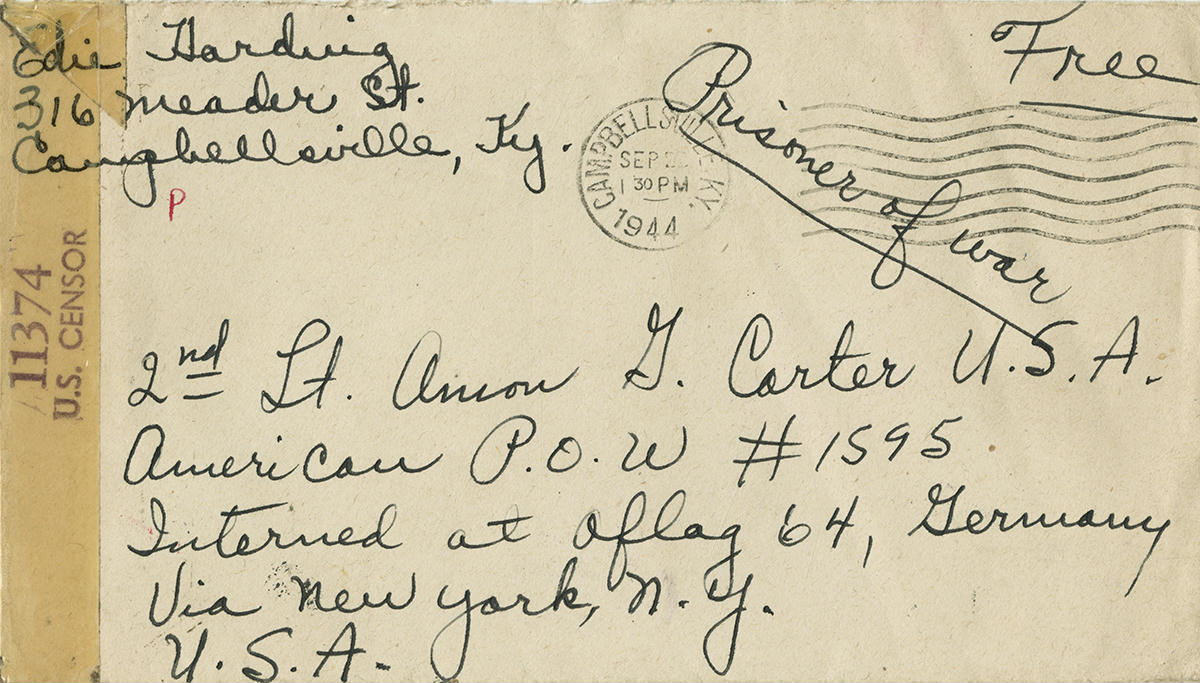 Edie Harding
316 Meader St.
Campbellsville, Ky.
P
Free
Prisoner of war
CAMPBELLSVILLE, KY.
SEP
1 30 PM
1944
A11374
U.S. CENSOR
2nd Lt. Amon G. Carter U.S.A.
American P.O.W #1595
Interned at Oflag 64, Germany
Via New York, N.Y.
U.S.A.